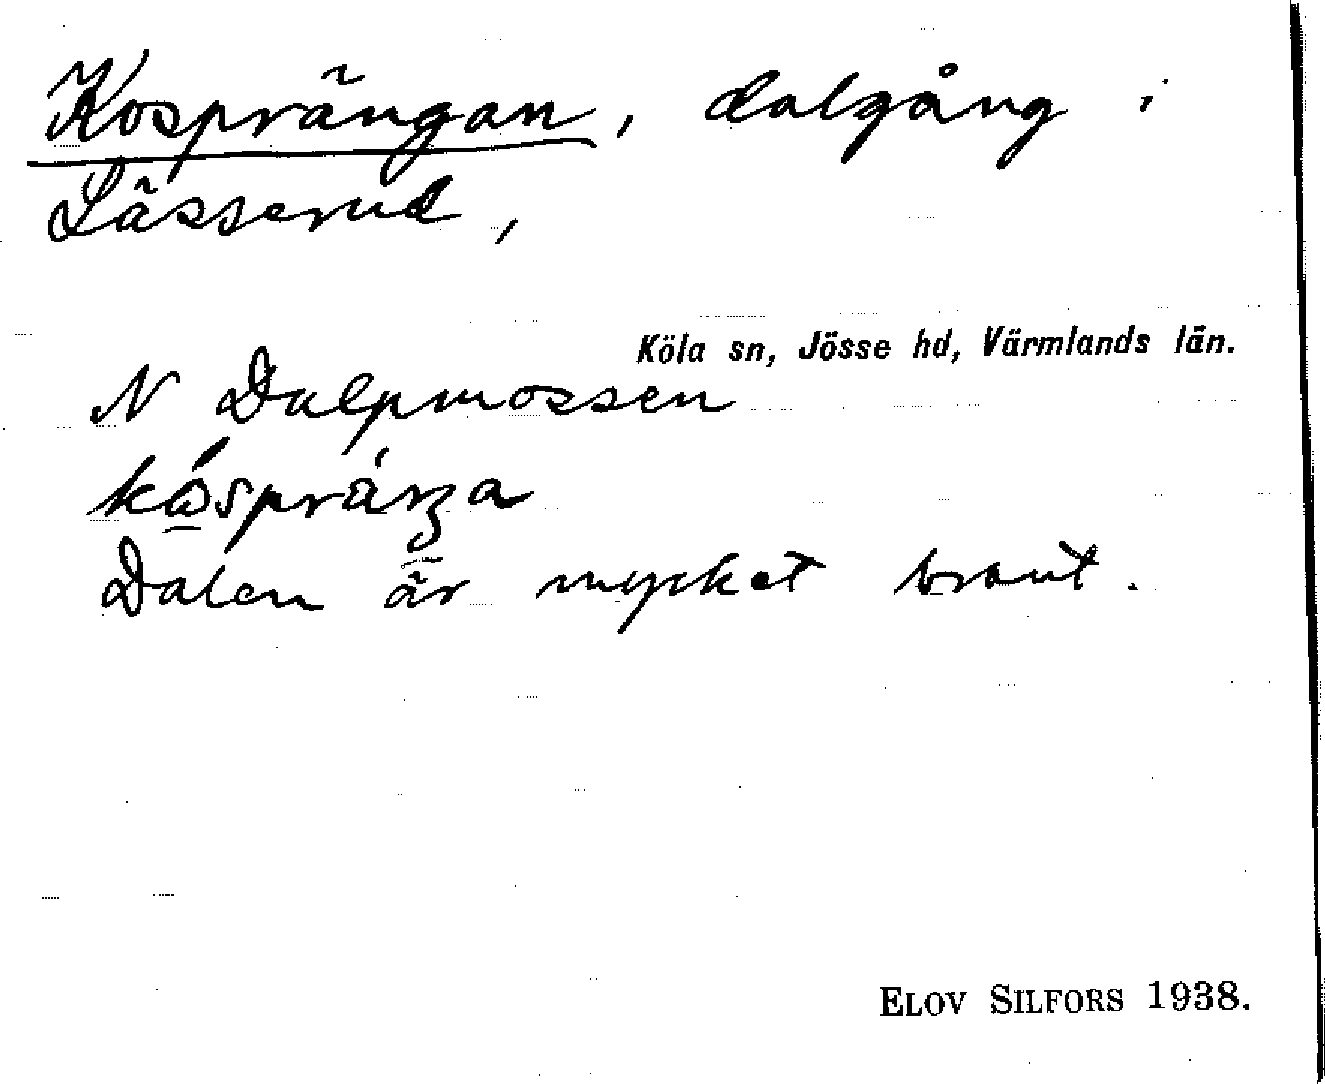 Kosprängan, dalgång i
Lässerud,
Köla sn, Jösse hd, Värmlands län.
N Dalpmossen
Dalen är mycket brant.
ELOV SILFORS 1938.